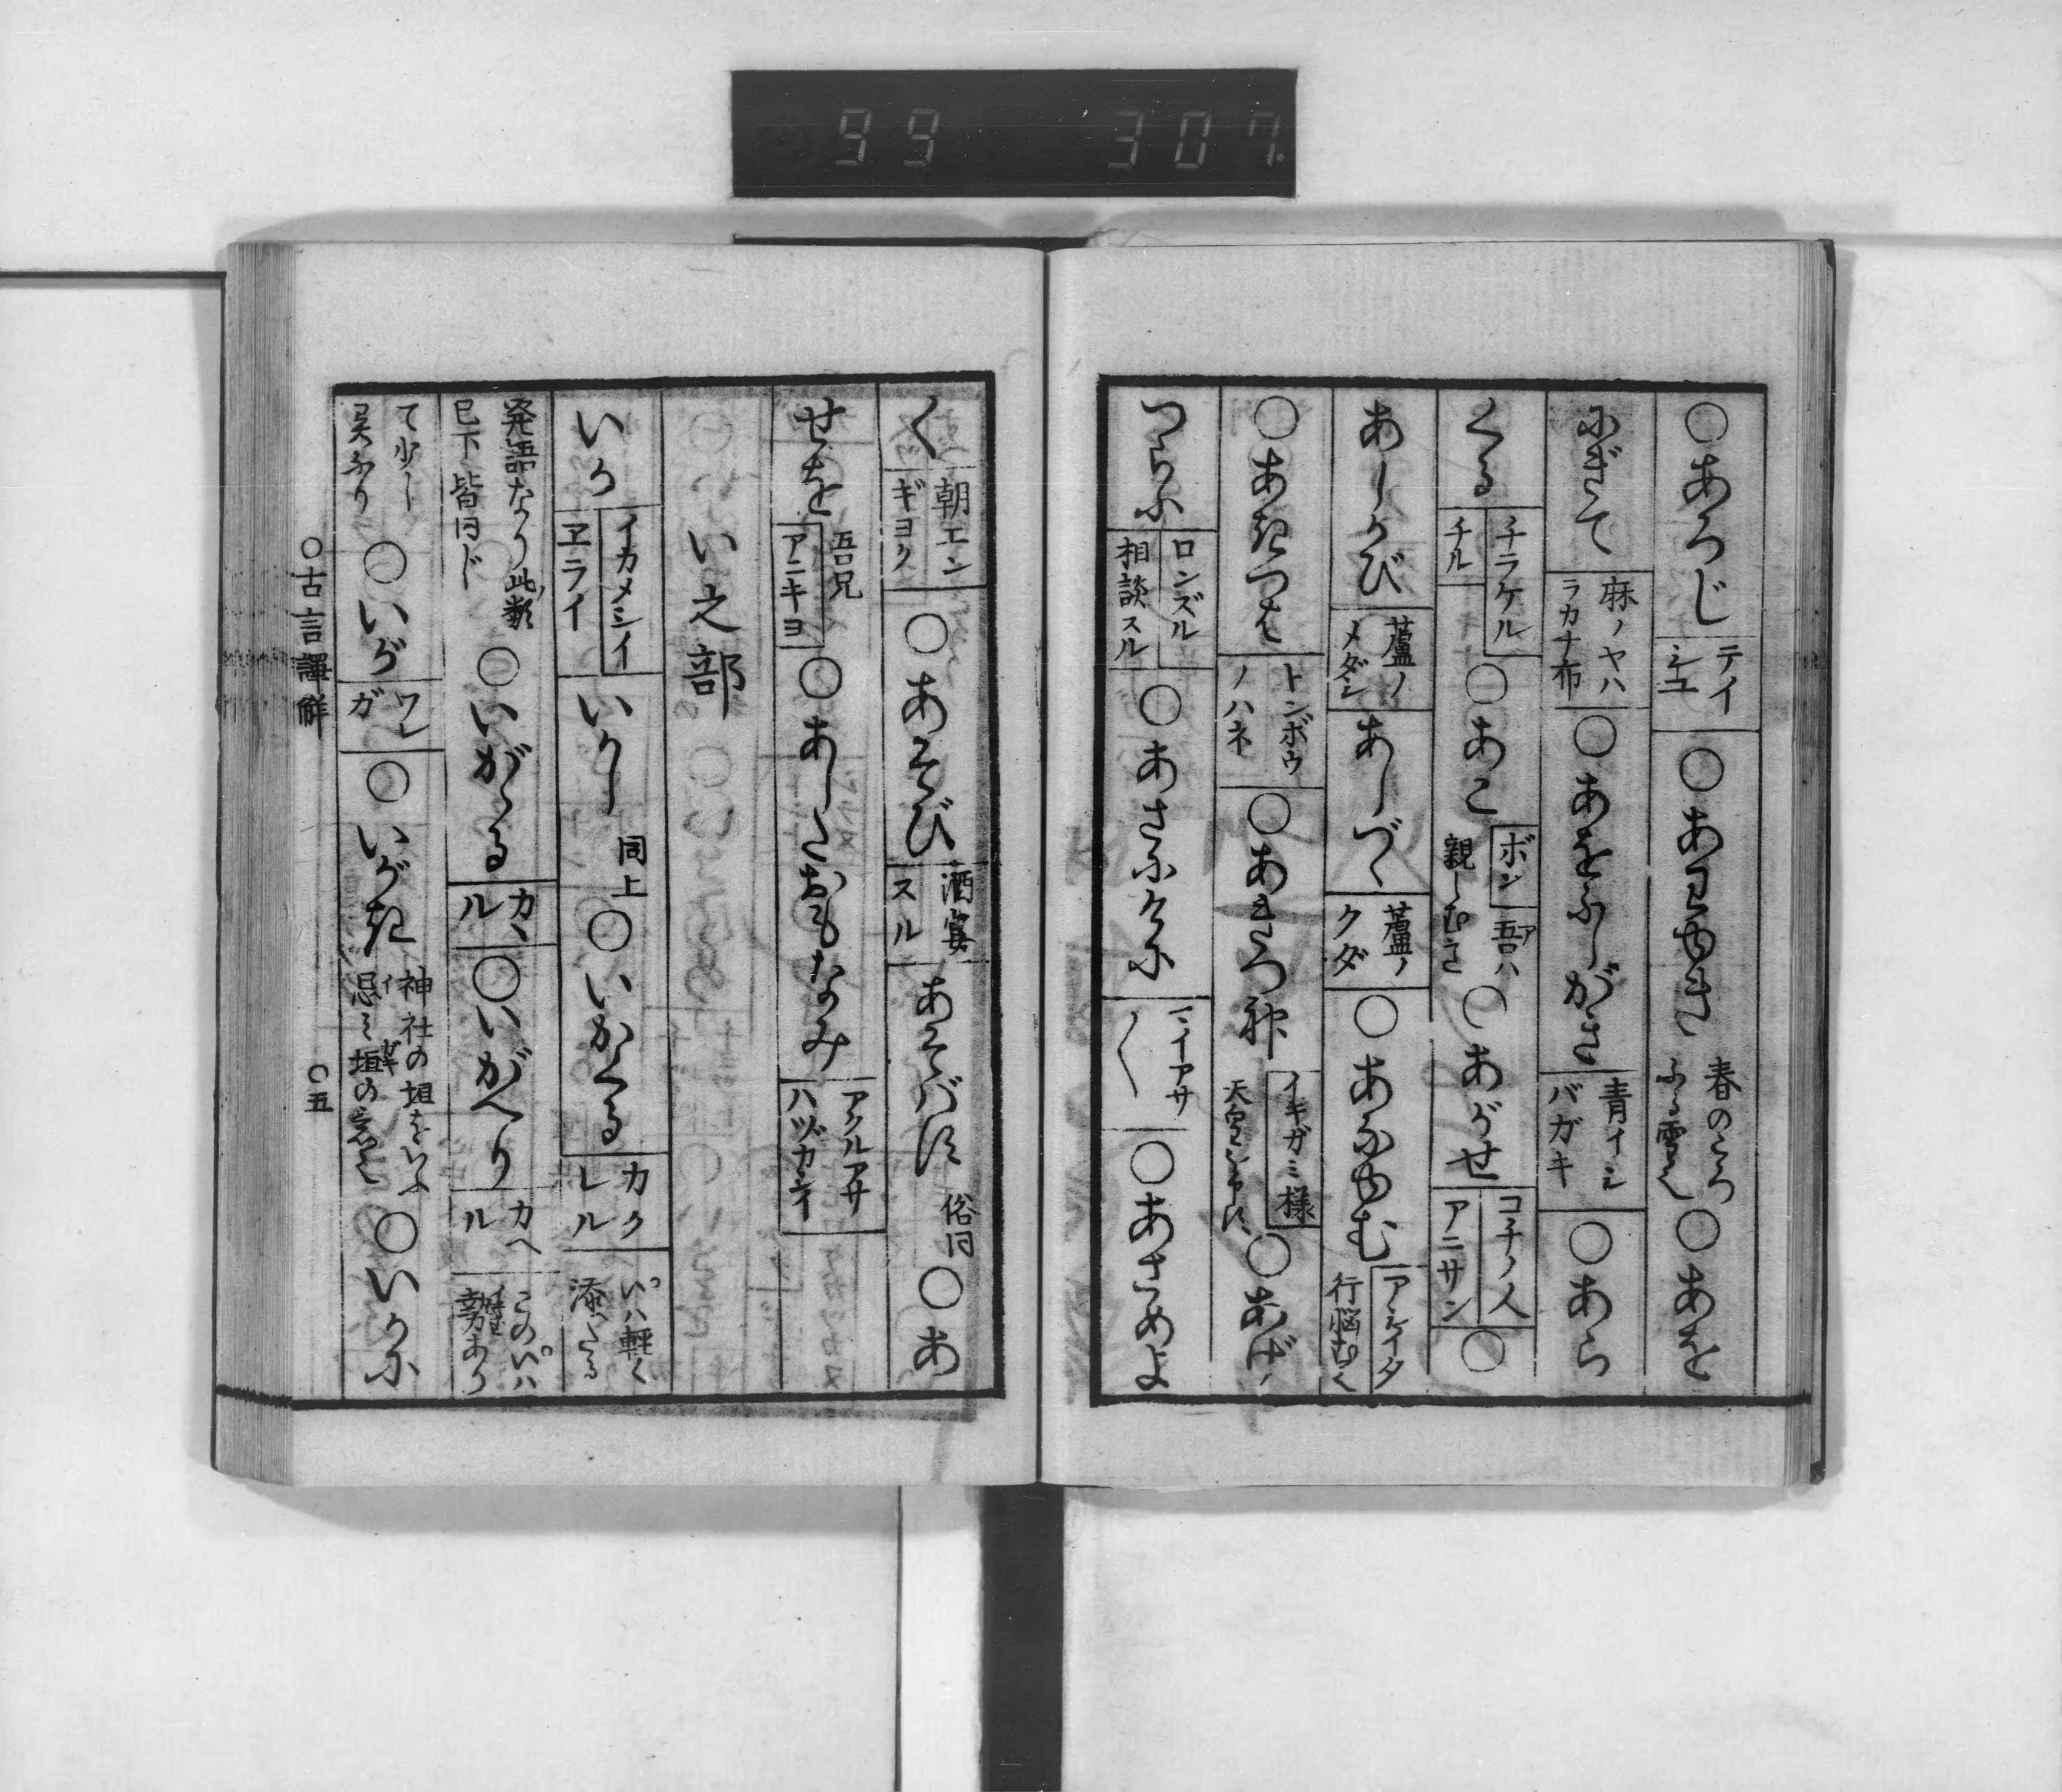 99 307.
○あろじ テイシユ ○あわゆき 春のころふる雪也 ○あを
にぎて 麻ノヤハラカナ布 ○あをふしがき 青イシバガキ ○あら
くる チラケルチル ○あこ ボン 吾ハ親しむこと ○あがせ コチノ人アニサン ○
あしかび 蘆ノメダシ あしづく 蘆ノクダ ○あなゆむ アシイタ行悩む也
○あきつは トンボウノハネ ○あきつ神 イキガミ様 天皇を申す ○あげ
つらふ ロンズル相談スル ○あさにけに マイアサ〳〵 ○あさめよ
く 朝エンギヨク ○あそび 酒宴スル あそバす 俗同 ○あ
せを 吾兄アニキヨ ○あしたおもなみ アクルアサハヅカシイ
い之部
いか イカメシイヱライ いかし 同上 ○いかくる カクレル いハ軽く添へたる
発語なり此類已下皆同じ ○いがゝる カヽル ○いがへり カヘル このいハ勢あり
て少し異なり ○いが ワレガ ○いがき 神社の垣をいふ忌ミ垣の意也 ○いかに
○古言譯解 ○五